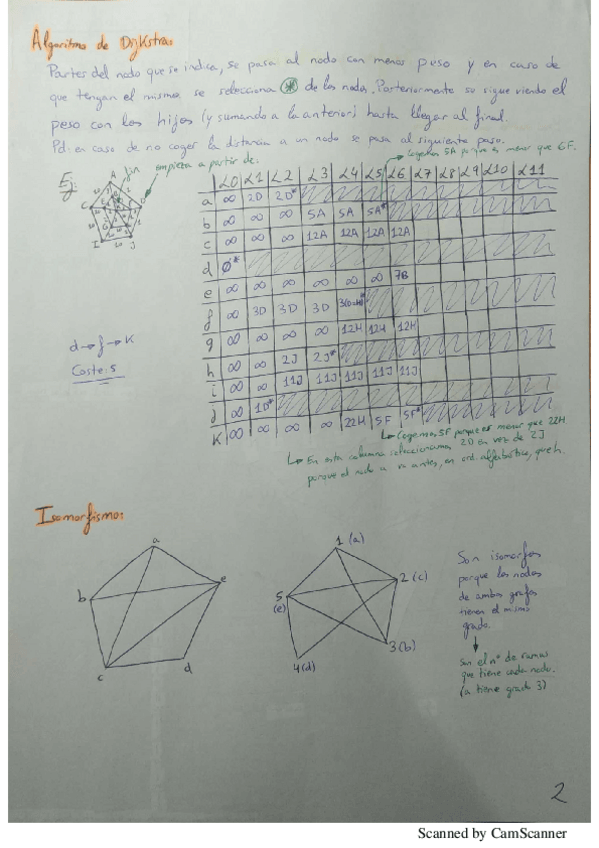 Algoritmo de Dijkstra:
Partes del nodo que se indica, se pasa al nodo con menor peso y en caso de
que tengan el mismo se selecciona * de los nodos. Posteriormente se sigue viendo el
peso con los hijos (y sumando a la anterior) hasta llegar al final.
Pd: en caso de no coger la distancia a un nodo se pasa al siguiente paso.
Cogemos 5A porque es menor que 6F.
Ej:
empieza a partir de:
L0 L1 L2 L3 L4 L5 L6 L7 L8 L9 L10 L11
a ∞ 2D 2D*
b ∞ ∞ ∞ 5A 5A 5A*
c ∞ ∞ ∞ 12A 12A 12A 12A
d 0*
e ∞ ∞ ∞ ∞ ∞ ∞ 7B
f ∞ 3D 3D 3D
g ∞ ∞ ∞ ∞ 12H 12H 12H
h ∞ ∞ 2J 2J*
i ∞ ∞ 11J 11J 11J 11J 11J
j ∞ 1D*
K ∞ ∞ ∞ ∞ 22H 5F 5F*
d→f→K
Coste: 5
Cogemos 5F porque es menor que 22H
En esta columna seleccionamos 2D en vez de 2J
porque el nodo a va antes, en ord. alfabético, que h.
Isomorfismo:
a
b
e
c
d
1 (a)
2 (c)
5
(e)
3 (b)
4 (d)
Son isomorfos
porque los nodos
de ambos grafos
tienen el mismo
grado.
Son el nº de ramas
que tiene cada nodo.
(a tiene grado 3)
2
Scanned by CamScanner